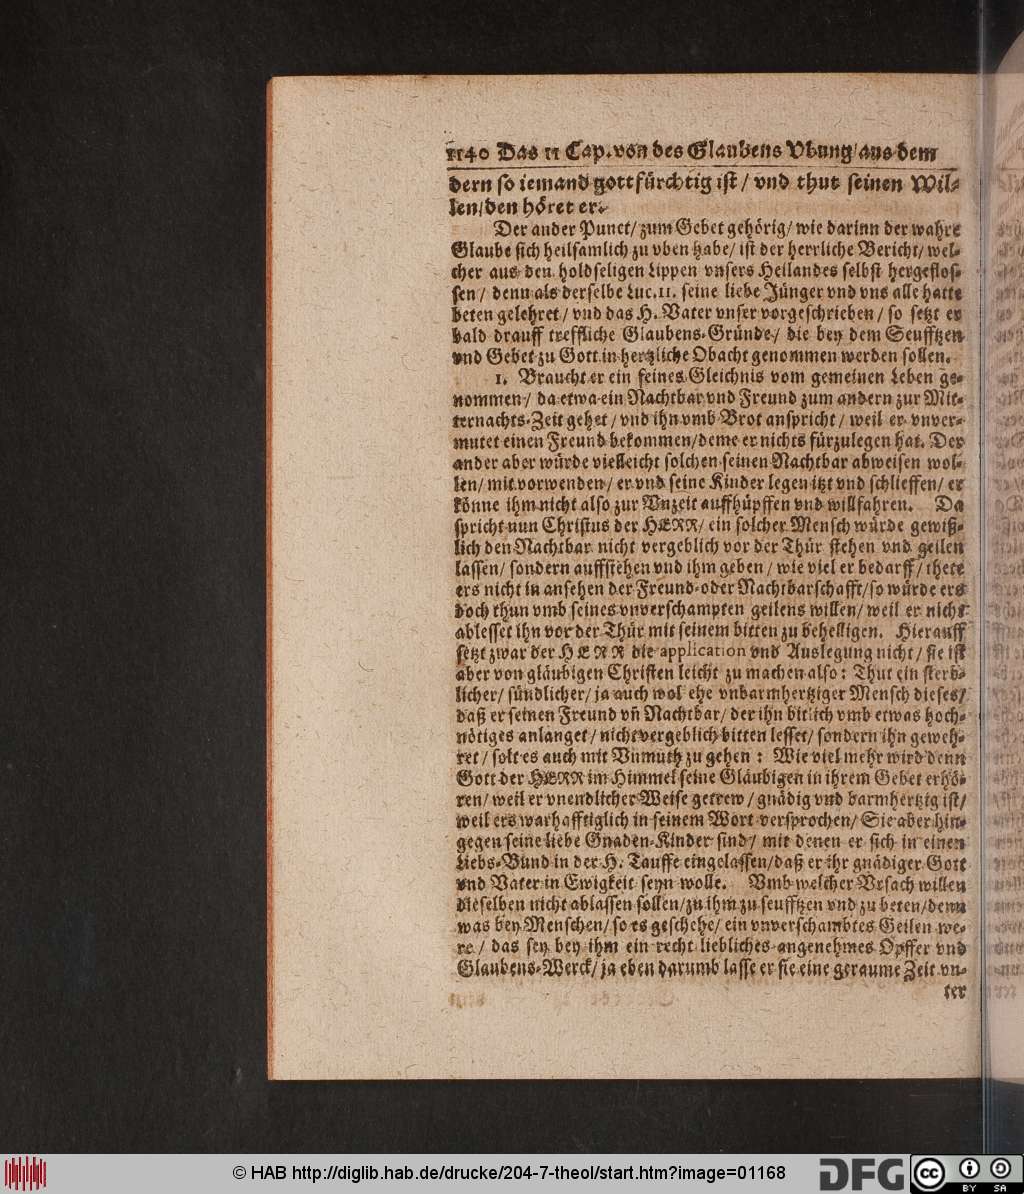 1140 Das 11 Cap. von des Glaubens Vbung/ aus dem
dern so iemand gottfürchtig ist / vnd thut seinen Wil-
len/ den höret er.
Der ander Punct/ zum Gebet gehörig/ wie darinn der wahre
Glaube sich heilsamlich zu vben habe/ ist der herrliche Bericht/ wel-
cher aus den holdseligen Lippen vnsers Heilandes selbst hergeflos-
sen / denn als derselbe Luc. 11. seine liebe Jünger vnd vns alle hatte
beten gelehret / vnd das H. Vater vnser vorgeschrieben / so setzt er
bald drauff treffliche Glaubens-Gründe / die bey dem Seufftzen
vnd Gebet zu Gott in hertzliche Obacht genommen werden sollen.
1. Braucht er ein feines Gleichnis vom gemeinen Leben ge-
nommen / da etwa ein Nachtbar vnd Freund zum andern zur Mit-
ternachts-Zeit gehet / vnd ihn vmb Brot anspricht / weil er vnver-
mutet einen Freund bekommen/ deme er nichts fürzulegen hat. Der
ander aber würde vielleicht solchen seinen Nachtbar abweisen wol-
len/ mit vorwenden / er vnd seine Kinder legen itzt vnd schlieffen/ er
könne ihm nicht also zur Vnzeit auffhüpffen vnd willfahren. Da
spricht nun Christus der HERR/ ein solcher Mensch würde gewiß-
lich den Nachtbar nicht vergeblich vor der Thür stehen vnd geilen
lassen/ sondern auffstehen vnd ihm geben / wie viel er bedarff / thete
ers nicht in ansehen der Freund-oder Nachtbarschafft/ so würde ers
doch thun vmb seines vnverschampten geilens willen/ weil er nicht
ablesset ihn vor der Thür mit seinem bitten zu behelligen. Hierauff
setzt zwar der HERR die application vnd Auslegung nicht / sie ist
aber von gläubigen Christen leicht zu machen also: Thut ein sterb-
licher/ sündlicher/ ja auch wol ehe vnbarmhertziger Mensch dieses/
daß er seinen Freund vñ Nachtbar/ der ihn bitlich vmb etwas hoch-
nötiges anlanget / nicht vergeblich bitten lesset/ sondern ihn geweh-
ret / solt es auch mit Vnmuth zu gehen: Wie viel mehr wird denn
Gott der HERR im Himmel seine Gläubigen in ihrem Gebet erhö-
ren/ weil er vnendlicher Weise getrew / gnädig vnd barmhertzig ist/
weil ers warhafftiglich in seinem Wort versprochen/ Sie aber hin-
gegen seine liebe Gnaden-Kinder sind/ mit denen er sich in einen
Liebs-Bund in der H. Tauffe eingelassen/ daß er ihr gnädiger Gott
vnd Vater in Ewigkeit seyn wolle. Vmb welcher Vrsach willen
dieselben nicht ablassen sollen/ zu ihm zu seufftzen vnd zu beten/ denn
was bey Menschen/ so es geschehe/ ein vnverschambtes Geilen we-
re / das sey bey ihm ein recht liebliches angenehmes Opffer vnd
Glaubens-Werck/ ja eben darumb lasse er sie eine geraume Zeit vn-
ter
© HAB http://diglib.hab.de/drucke/204-7-theol/start.htm?image=01168
DFG
cc BY SA